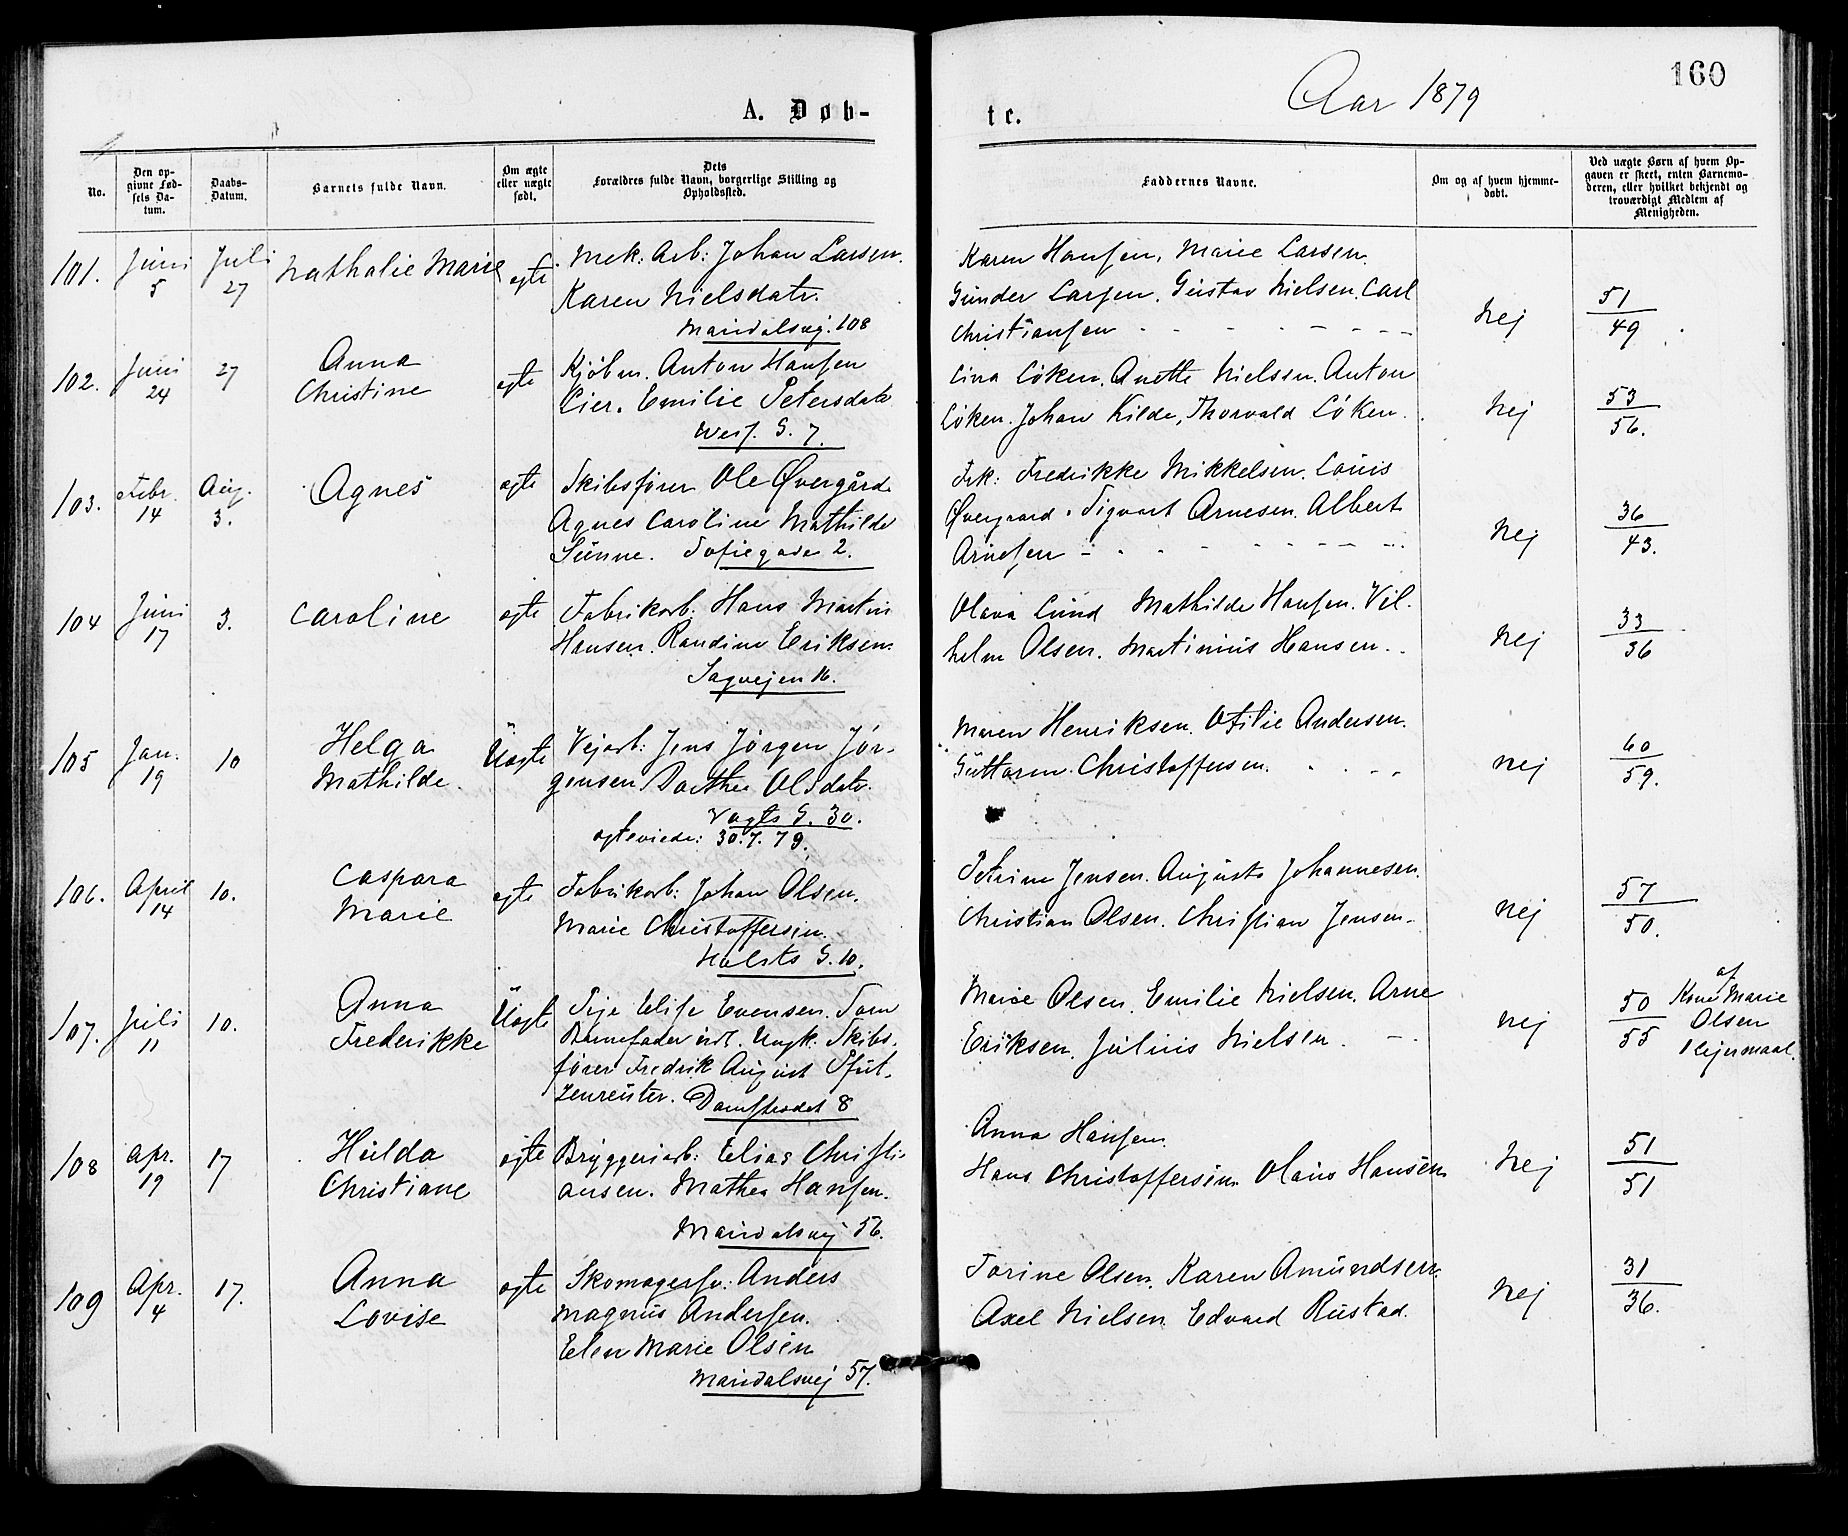 160
Aar 1879
A. Døb-
te.
No.
Den op-
givne Fød-
sels Da-
tum.
Daabs-
Datum.
Barnets fulde Navn.
Om ægte
eller uægte
født.
Dets
Forældres fulde Navn, borgerlige Stilling og
Opholdssted.
Faddernes Navne.
Om og af hvem hjemme-
døbt.
Ved uægte Børn af hvem Op-
gaven er skeet, enten Barnemo-
deren, eller hvilket bekjendt og
troværdigt Medlem af
Menigheden.
101. Juni 5 Juli 27 Nathalie Marie ægte
Mek: Arb: Johan Larsen.
Karen Nielsdatr.
Maridalsvej. 108
Karen Hansen, Marie Larsen.
Gunder Larsen. Gustav Nielsen. Carl
Christiansen
Nej
51
49
102. Juni 24 27
Anna
Christine
ægte
Kjøbm. Anton Hansen
Lier. Emilie Petersdatr
Wess. G. 7.
Lina Løken. Anette Nielsen. Anton
Løken. Johan Kilde, Thorvald Løken.
Nej
53
56.
103. Febr. 14 Aug. 3.
Agnes
ægte
Skibsfører Ole Øvergård
Agnes Caroline Mathilde
Sünne. Sofiegade 2.
Frk: Fredrikke Mikkelsen. Louis
Øvergaard. Sigvart Arnesen. Albert
Arnesen
Nej
36
43.
104 Juni 17 3.
Caroline
ægte
Fabrikarb. Hans Martin
Hansen. Randine Eriksen.
Sagvejen 16.
Olava Lund Mathilde Hansen. Vil-
helm Olsen. Martinius Hansen.
Nej
33
36
105 Jan. 19 10
Helga
Mathilde.
Uægte
Vejarb: Jens Jørgen Jør-
gensen. Dorthea Olsdatr.
Vogts G. 30.
ægteviede: 30.7.79.
Maren Henriksen. Otilie Andersen.
Guttorm Christoffersen.
Nej
60
59.
106. April 14 10.
Caspara
Marie
ægte
Fabrikarb: Johan Olsen.
Marie Christoffersen.
Holsts G. 10.
Petrine Jensen. Augusta Johannesen.
Christian Olsen. Christian Jensen.
Nej
57
50.
107. Juli 11 10.
Anna
Frederikke
Uægte
Pige Elise Evensen. Som
Barnefader udl. Ungk. Skibs-
fører Fredrik August Pfüt-
zenreuter. Damstredet 8
Marie Olsen. Emilie Nielsen. Arne
Eriksen. Julius Nielsen.
Nej
50
55
af
Kone Marie
Olsen
1 Lejermaal.
108 Apr. 19 17
Hulda
Christiane
ægte
Bryggeriarb: Elias Christi-
ansen. Mathea Hansen.
Maridalsvej 56.
Anna Hansen.
Hans Christoffersen. Olaus Hansen
Nej
51
51
109 Apr. 4 17.
Anna
Lovise
ægte
Skomagersv: Anders
Magnus Andersen.
Elen Marie Olsen
Maridalsvej 57.
Torine Olsen. Karen Amundsen.
Axel Nielsen. Edvard Rustad.
Nej
31
36.